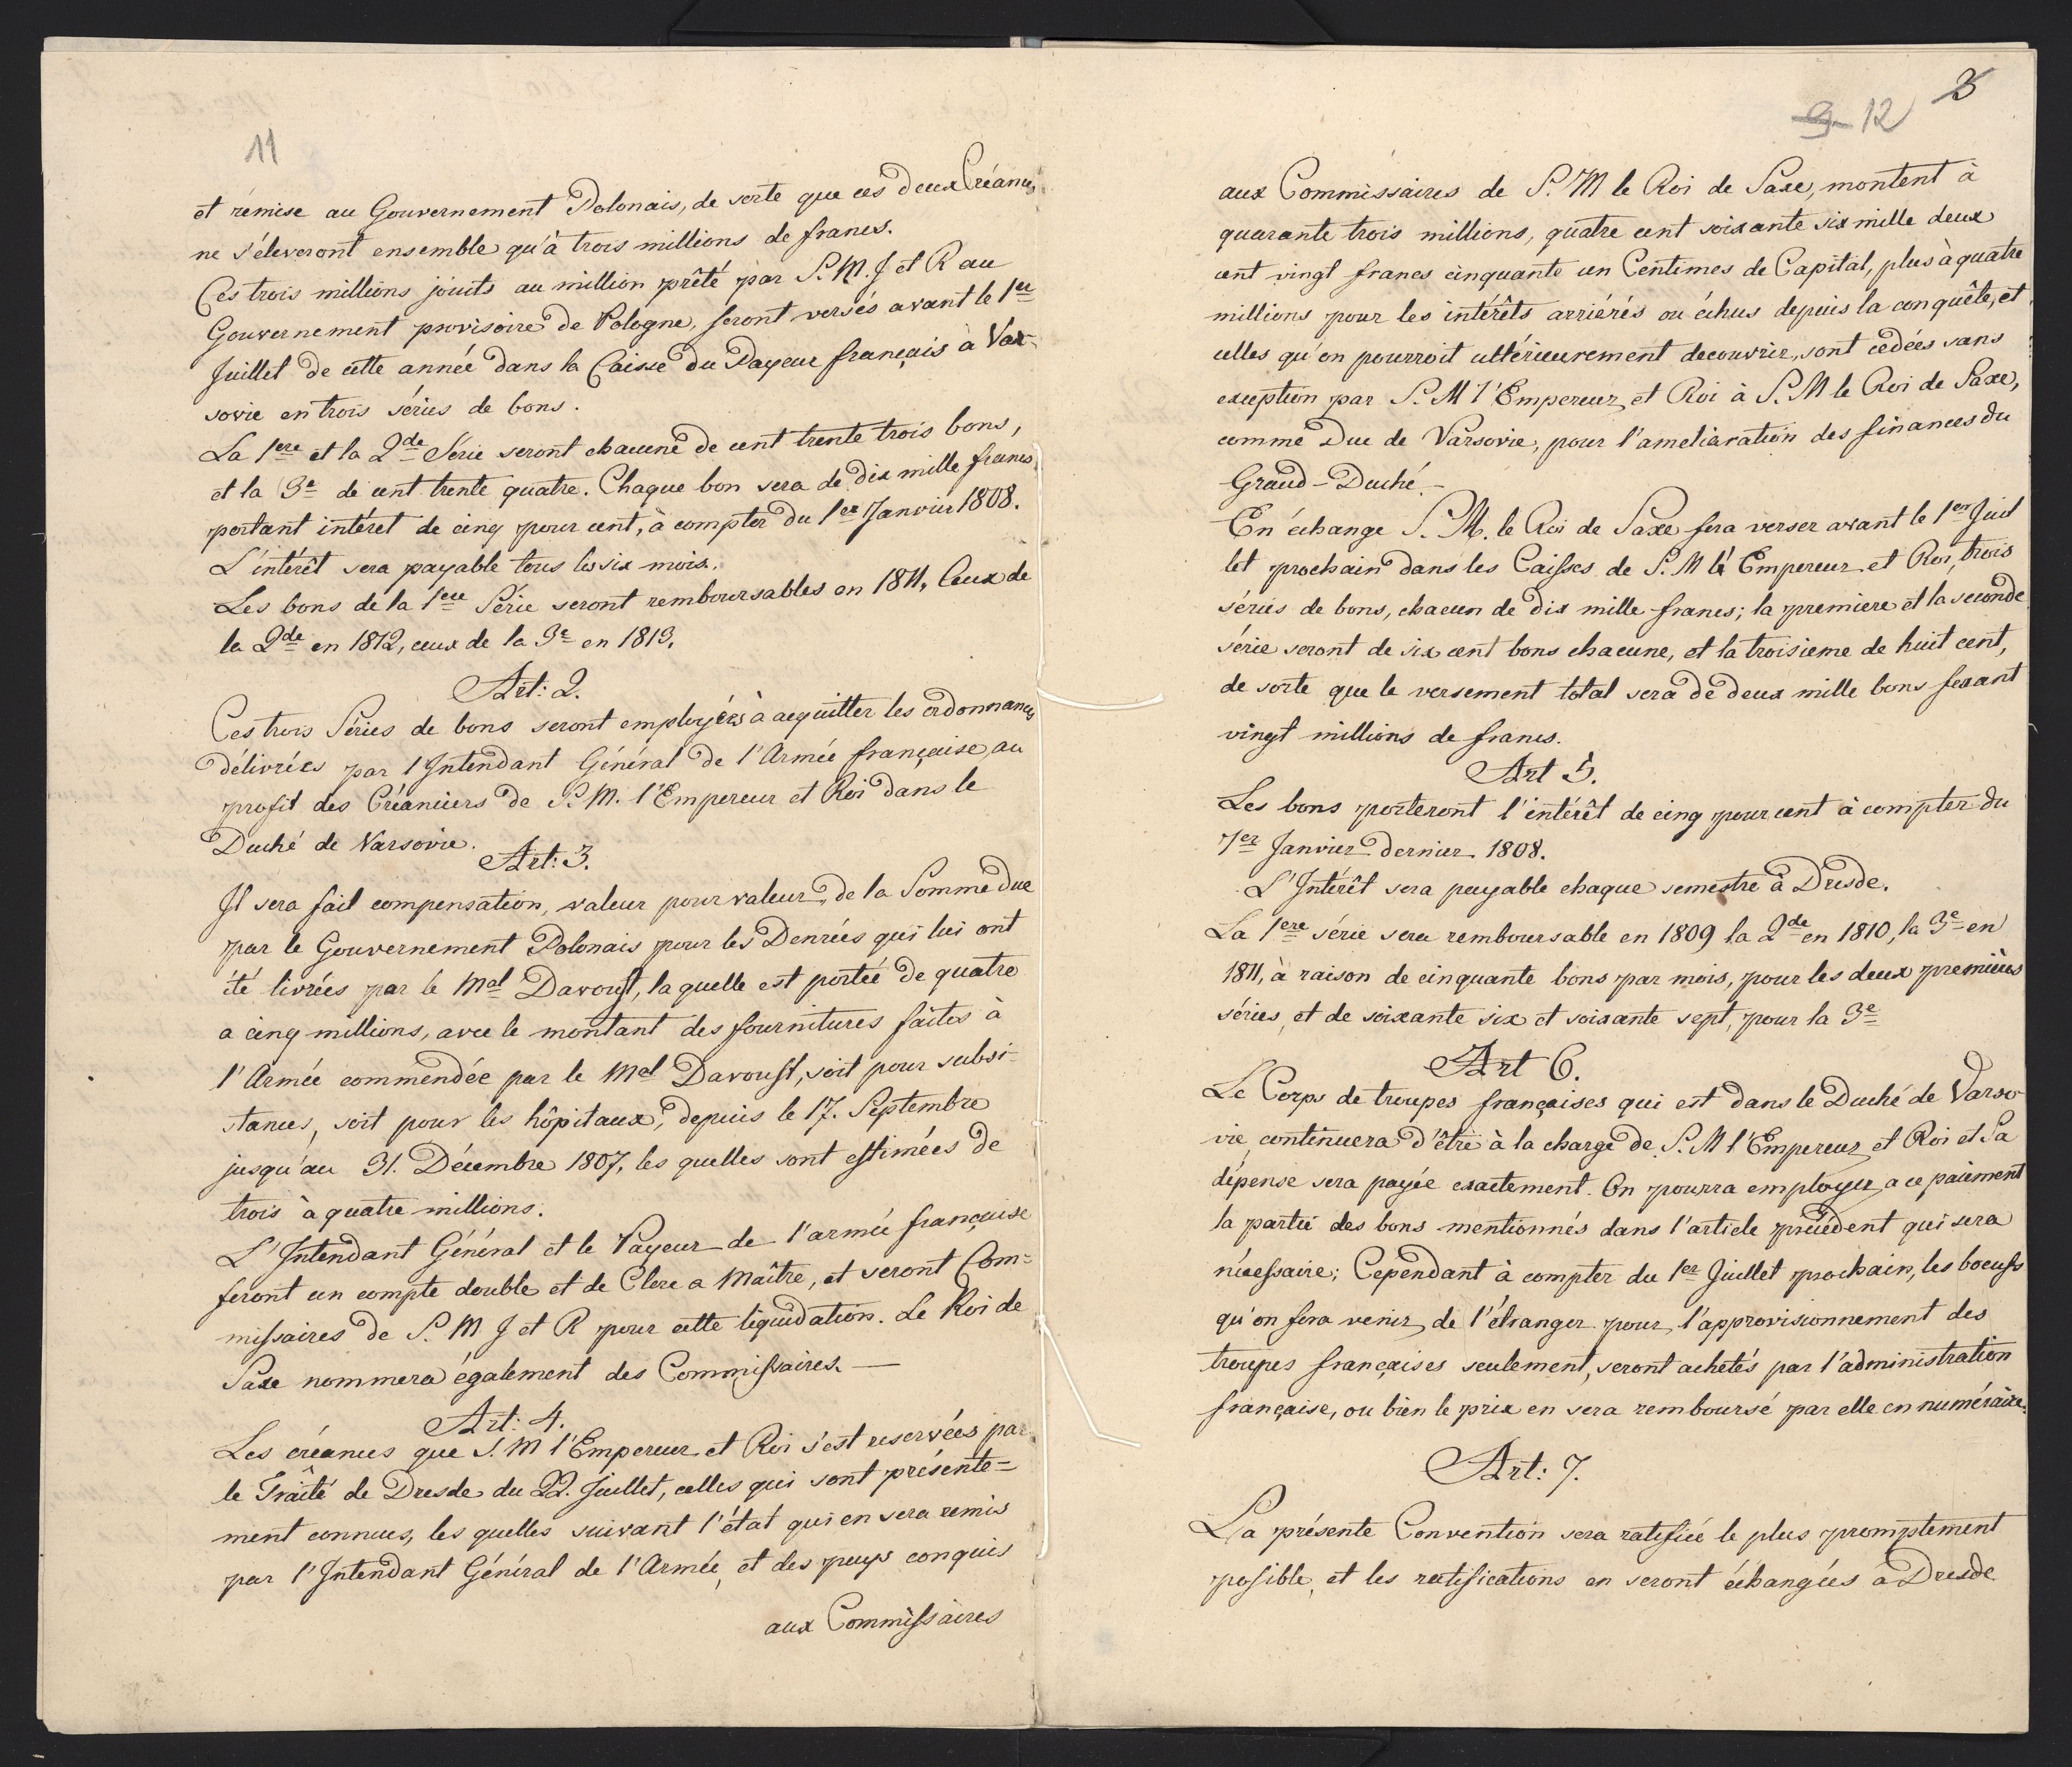 11
et rémise au Gouvernement Polonais, de sorte que ces deux Créances
ne s'éleveront ensemble qu'à trois millions de francs.
Ces trois millions joints au million prêté par S. M. J et R au
Gouvernement provisoire de Pologne, seront versés avant le 1er
Juillet de cette année dans la Caisse du Payeur français à Var-
sovie en trois séries de bons.
La 1ere et la 2de Série seront chacune de cent trente trois bons,
et la 3e de cent trente quatre. Chaque bon sera de dix mille francs
portant intéret de cinq pour cent, à compter du 1er Janvier 1808.
L'intérêt sera payable tous les six mois.
Les bons de la 1ere Série seront remboursables en 1811, Ceux de
la 2de en 1812, ceux de la 3e en 1813.
Art: 2.
Ces trois Séries de bons seront employées à acquitter les ordonnances
délivrées par l'Intendant Général de l'Armée française, au
profit des Créanciers de S. M. l'Empereur et Roi dans le
Duché de Varsovie.
Art: 3.
Il sera fait compensation, valeur pour valeur, de la Somme due
par le Gouvernement Polonais pour les Denrées qui lui ont
été livrées par le Mal Davoust, la quelle est portée de quatre
a cinq millions, avec le montant des fournitures faites à
l'Armée commendée par le Mal Davoust, soit pour subsi-
stances, soit pour les hôpitaux, depuis le 17. Septembre
jusqu'au 31. Décembre 1807, les quelles sont estimées de
trois à quatre millions.
L'Intendant Général et le Payeur de l'armée française
feront un compte double et de Clerc a Maître, et seront Com=
missaires de S. M J et R pour cette liquidation. Le Roi de
Saxe nommera également des Commissaires. —
Art: 4.
Les créances que S. M l'Empereur et Roi s'est reservées par
le Traité de Dresde du 22. Juillet, celles qui sont présente=
ment connues, les quelles suivant l'état qui en sera remis
par l'Intendant Général de l'Armée, et des pays conquis
aux Commissaires
9 12
aux Commissaires de S. M le Roi de Saxe, montent à
quarante trois millions, quatre cent soixante six mille deux
cent vingt francs cinquante un Centimes de Capital, plus à quatre
millions pour les intérêts arriérés ou échus depuis la conquête, et
celles qu'on pourroit ultérieurement decouvrir, sont cédées sans
exception par S. M l'Empereur et Roi à S. M le Roi de Saxe,
comme Duc de Varsovie, pour l'amelioration des finances du
Grand-Duché.-
En échange S. M. le Roi de Saxe fera verser avant le 1er Juil
let prochain dans les Caisses de S. M l'Empereur et Roi, trois
séries de bons, chacun de dix mille francs; la premiere et la seconde
série seront de six cent bons chacune, et la troisieme de huit cent,
de sorte que le versement total sera de deux mille bons fesant
vingt millions de francs.
Art 5.
Les bons porteront l'intérêt de cinq pour cent à compter du
1er Janvier dernier 1808.
L'Intérêt sera payable chaque semestre à Dresde.
La 1ere série sera remboursable en 1809 la 2de en 1810, la 3e en
1811, à raison de cinquante bons par mois, pour les deux premières
séries, et de soixante six et soixante sept, pour la 3e
Art 6.
Le Corps de troupes françaises qui est dans le Duché de Varso
vie, continuera d'être à la charge de S. M l'Empereur et Roi et Sa
dépense sera payée exactement. On pourra employer a ce paiement
la partie des bons mentionnés dans l'article précédent qui sera
nécessaire; Cependant à compter du 1er Juillet prochain, les boeufs
qu'on fera venir de l'étranger pour l'approvisionnement des
troupes françaises seulement, seront achetés par l'administration
française, ou bien le prix en sera remboursé par elle en numéraire.
Art: 7.
La présente Convention sera ratifiée le plus promptement
posible, et les ratifications en seront échangées à Dresde